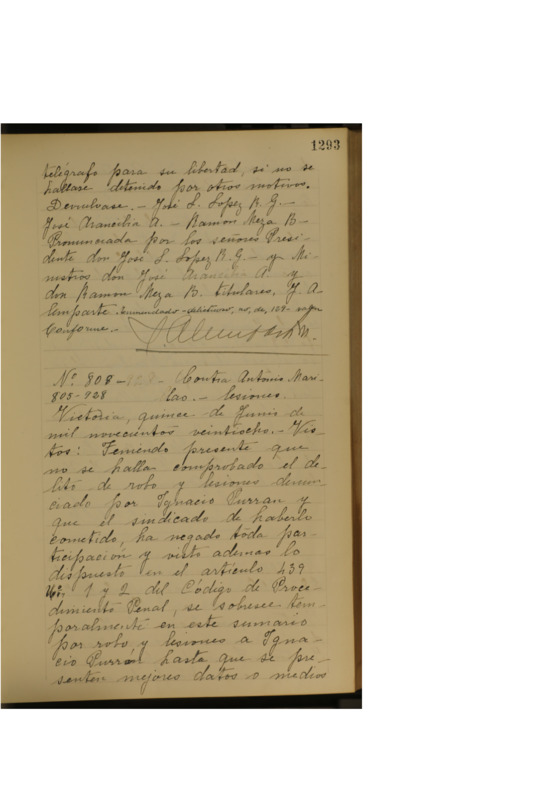 1293
telégrafo para su libertad, si no se
hallase detenido por otros motivos.
Devuélvase. – José L. Lopez R. G. –
José Arancibia A. – Ramon Meza B –
Pronunciada por los señores Presi-
dente don José L. Lopez R. G – y Mi-
nistros don José Arancibia A. y
don Ramon Meza B. titulares. J A
Lemparte. Enmendado
Conforme –
Nº 808 – Contra Antonio Mari-
805-928 lao. – lesiones.
Victoria, quince de Junio de
mil novecientos veintiocho. – Vis-
tos: Teniendo presente que
no se halla comprobado el de-
lito de robo y lesiones denun-
ciado por Ignacio Curran y
que el sindicado de haberlo
cometido, ha negado toda par-
ticipación y visto ademas lo
dispuesto en el artículo 439
Nº 1 y 2 del Código de Proce-
dimiento Penal, se sobresee tem-
poralmente en este sumario
por robo y lesiones a Igna-
cio Curran hasta que se pre-
senten mejores datos o medios